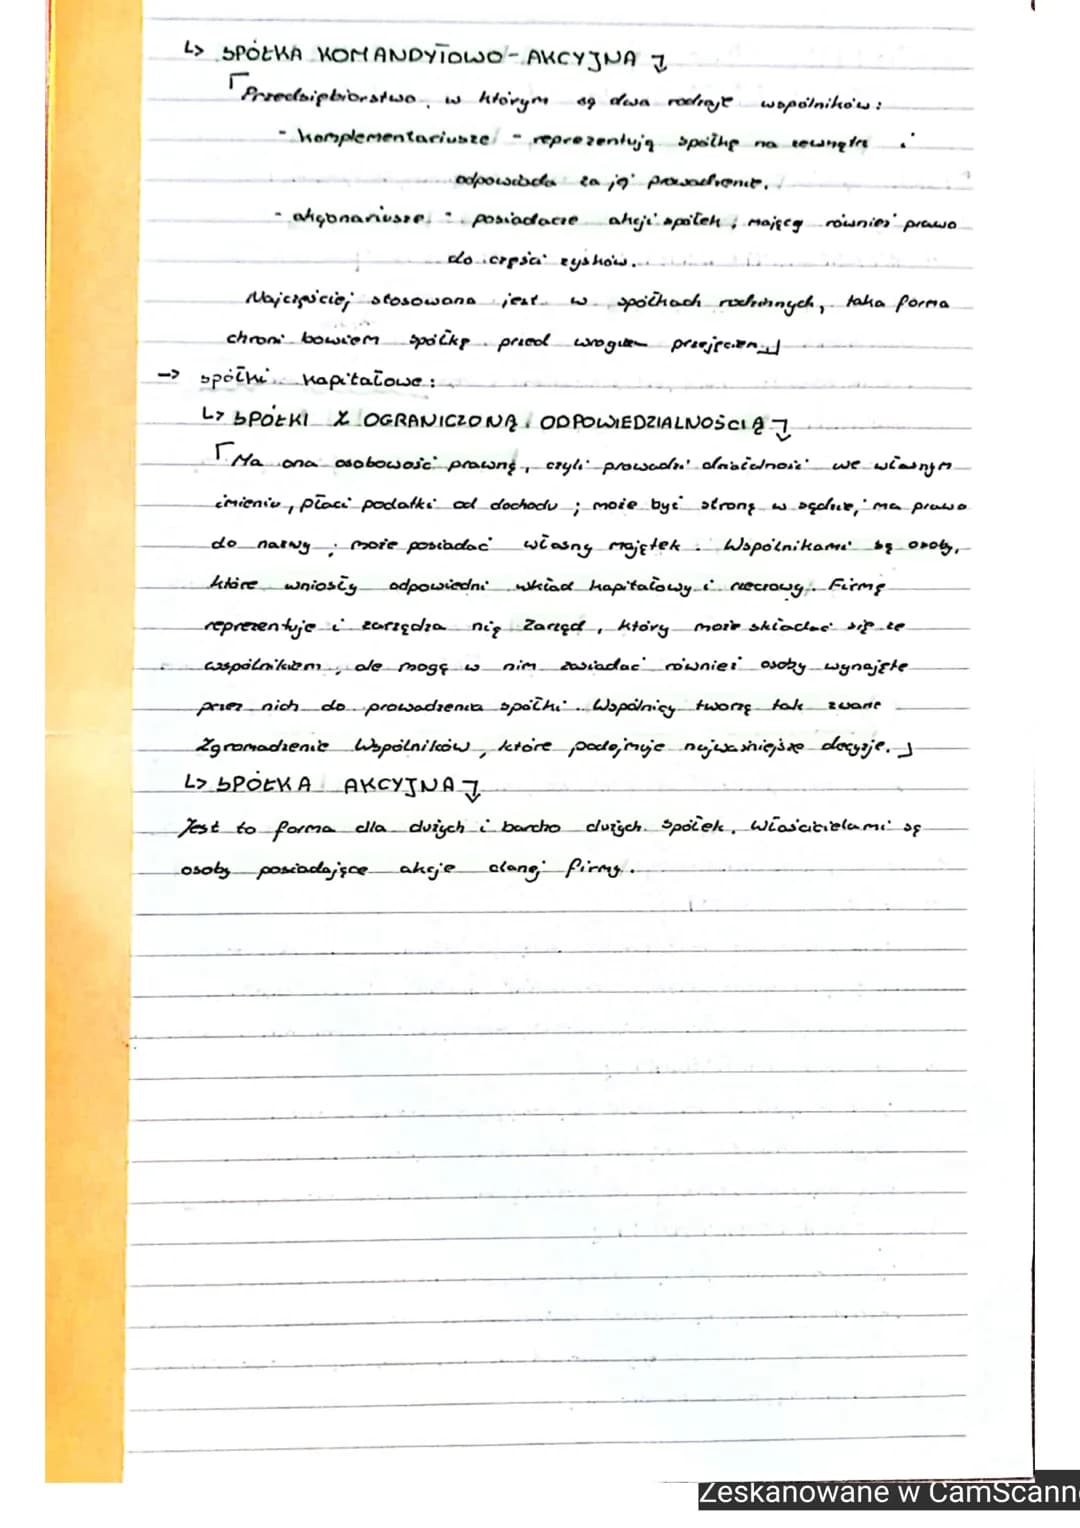 ↳ SPÓŁKA KOMANDYTOWO-AKCYJNA
Przedsiębiorstwo, w którym są dwa rodzaje wspólników:
- komplementariusze - reprezentują spółkę na zewnątrz i
odpowiada za jej prowadzenie.
- akcjonariusze - posiadacze akcji spółek i mający również prawo
do części zysków.
Najczęściej stosowana jest w spółkach rodzinnych, taka forma
chroni bowiem spółkę przed wrogim przejęciem
→ spółki kapitałowe:
↳ SPÓŁKI Z OGRANICZONĄ ODPOWIEDZIALNOŚCIĄ
Ma ona osobowość prawną, czyli prowadzi działalność we własnym
imieniu, płaci podatki od dochodu; może być stroną w sądzie, ma prawo
do nazwy i może posiadać własny majątek. Wspólnikami są osoby,
które wniosły odpowiedni wkład kapitałowy i rzeczowy. Firmę
reprezentuje i zarządza nią Zarząd, który może składać się ze
wspólników, ale mogą w nim zasiadać również osoby wynajęte
przez nich do prowadzenia spółki. Wspólnicy tworzą tak zwane
Zgromadzenie Wspólników, które podejmuje najważniejsze decyzje.
↳ SPÓŁKA AKCYJNA
Jest to forma dla dużych i bardzo dużych spółek. Właścicielami są
osoby posiadające akcje danej firmy.
Zeskanowane w CamScann